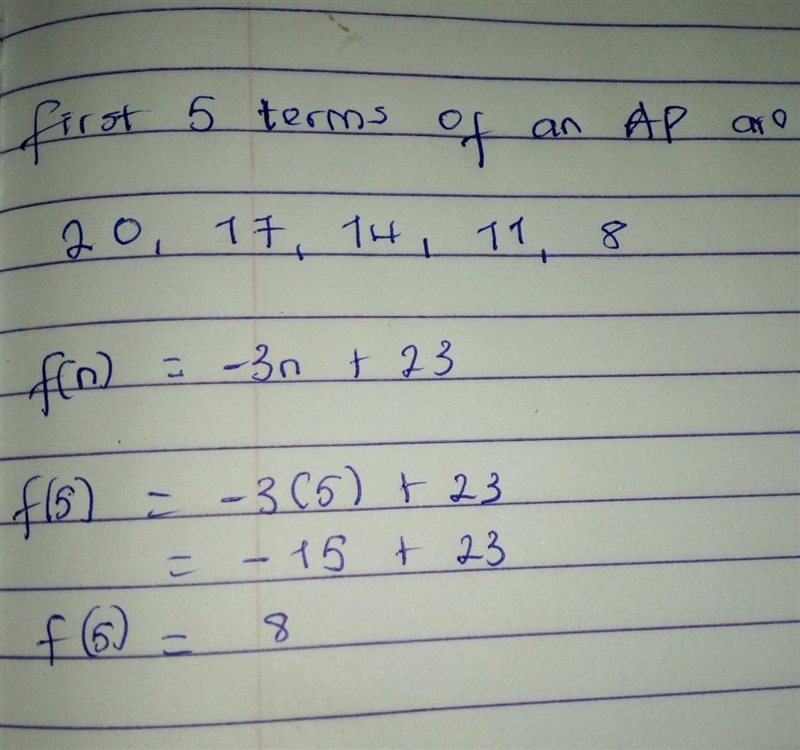 first 5 terms of an AP are
20, 17, 14, 11, 8
f(n) = -3n + 23
f(5) = -3(5) + 23
= -15 + 23
f(5) = 8